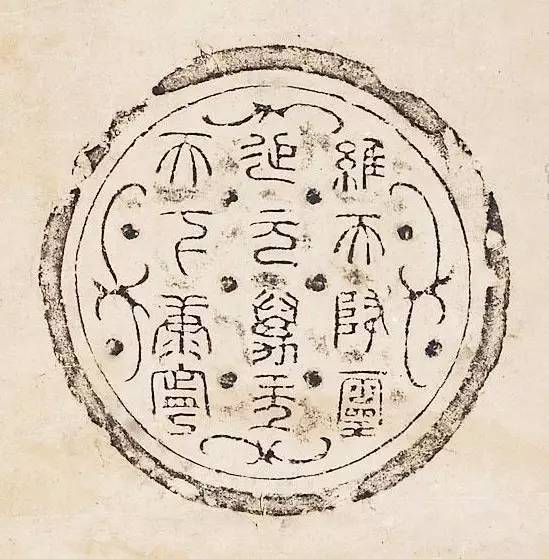 維天降靈
延元萬年
天下康寧